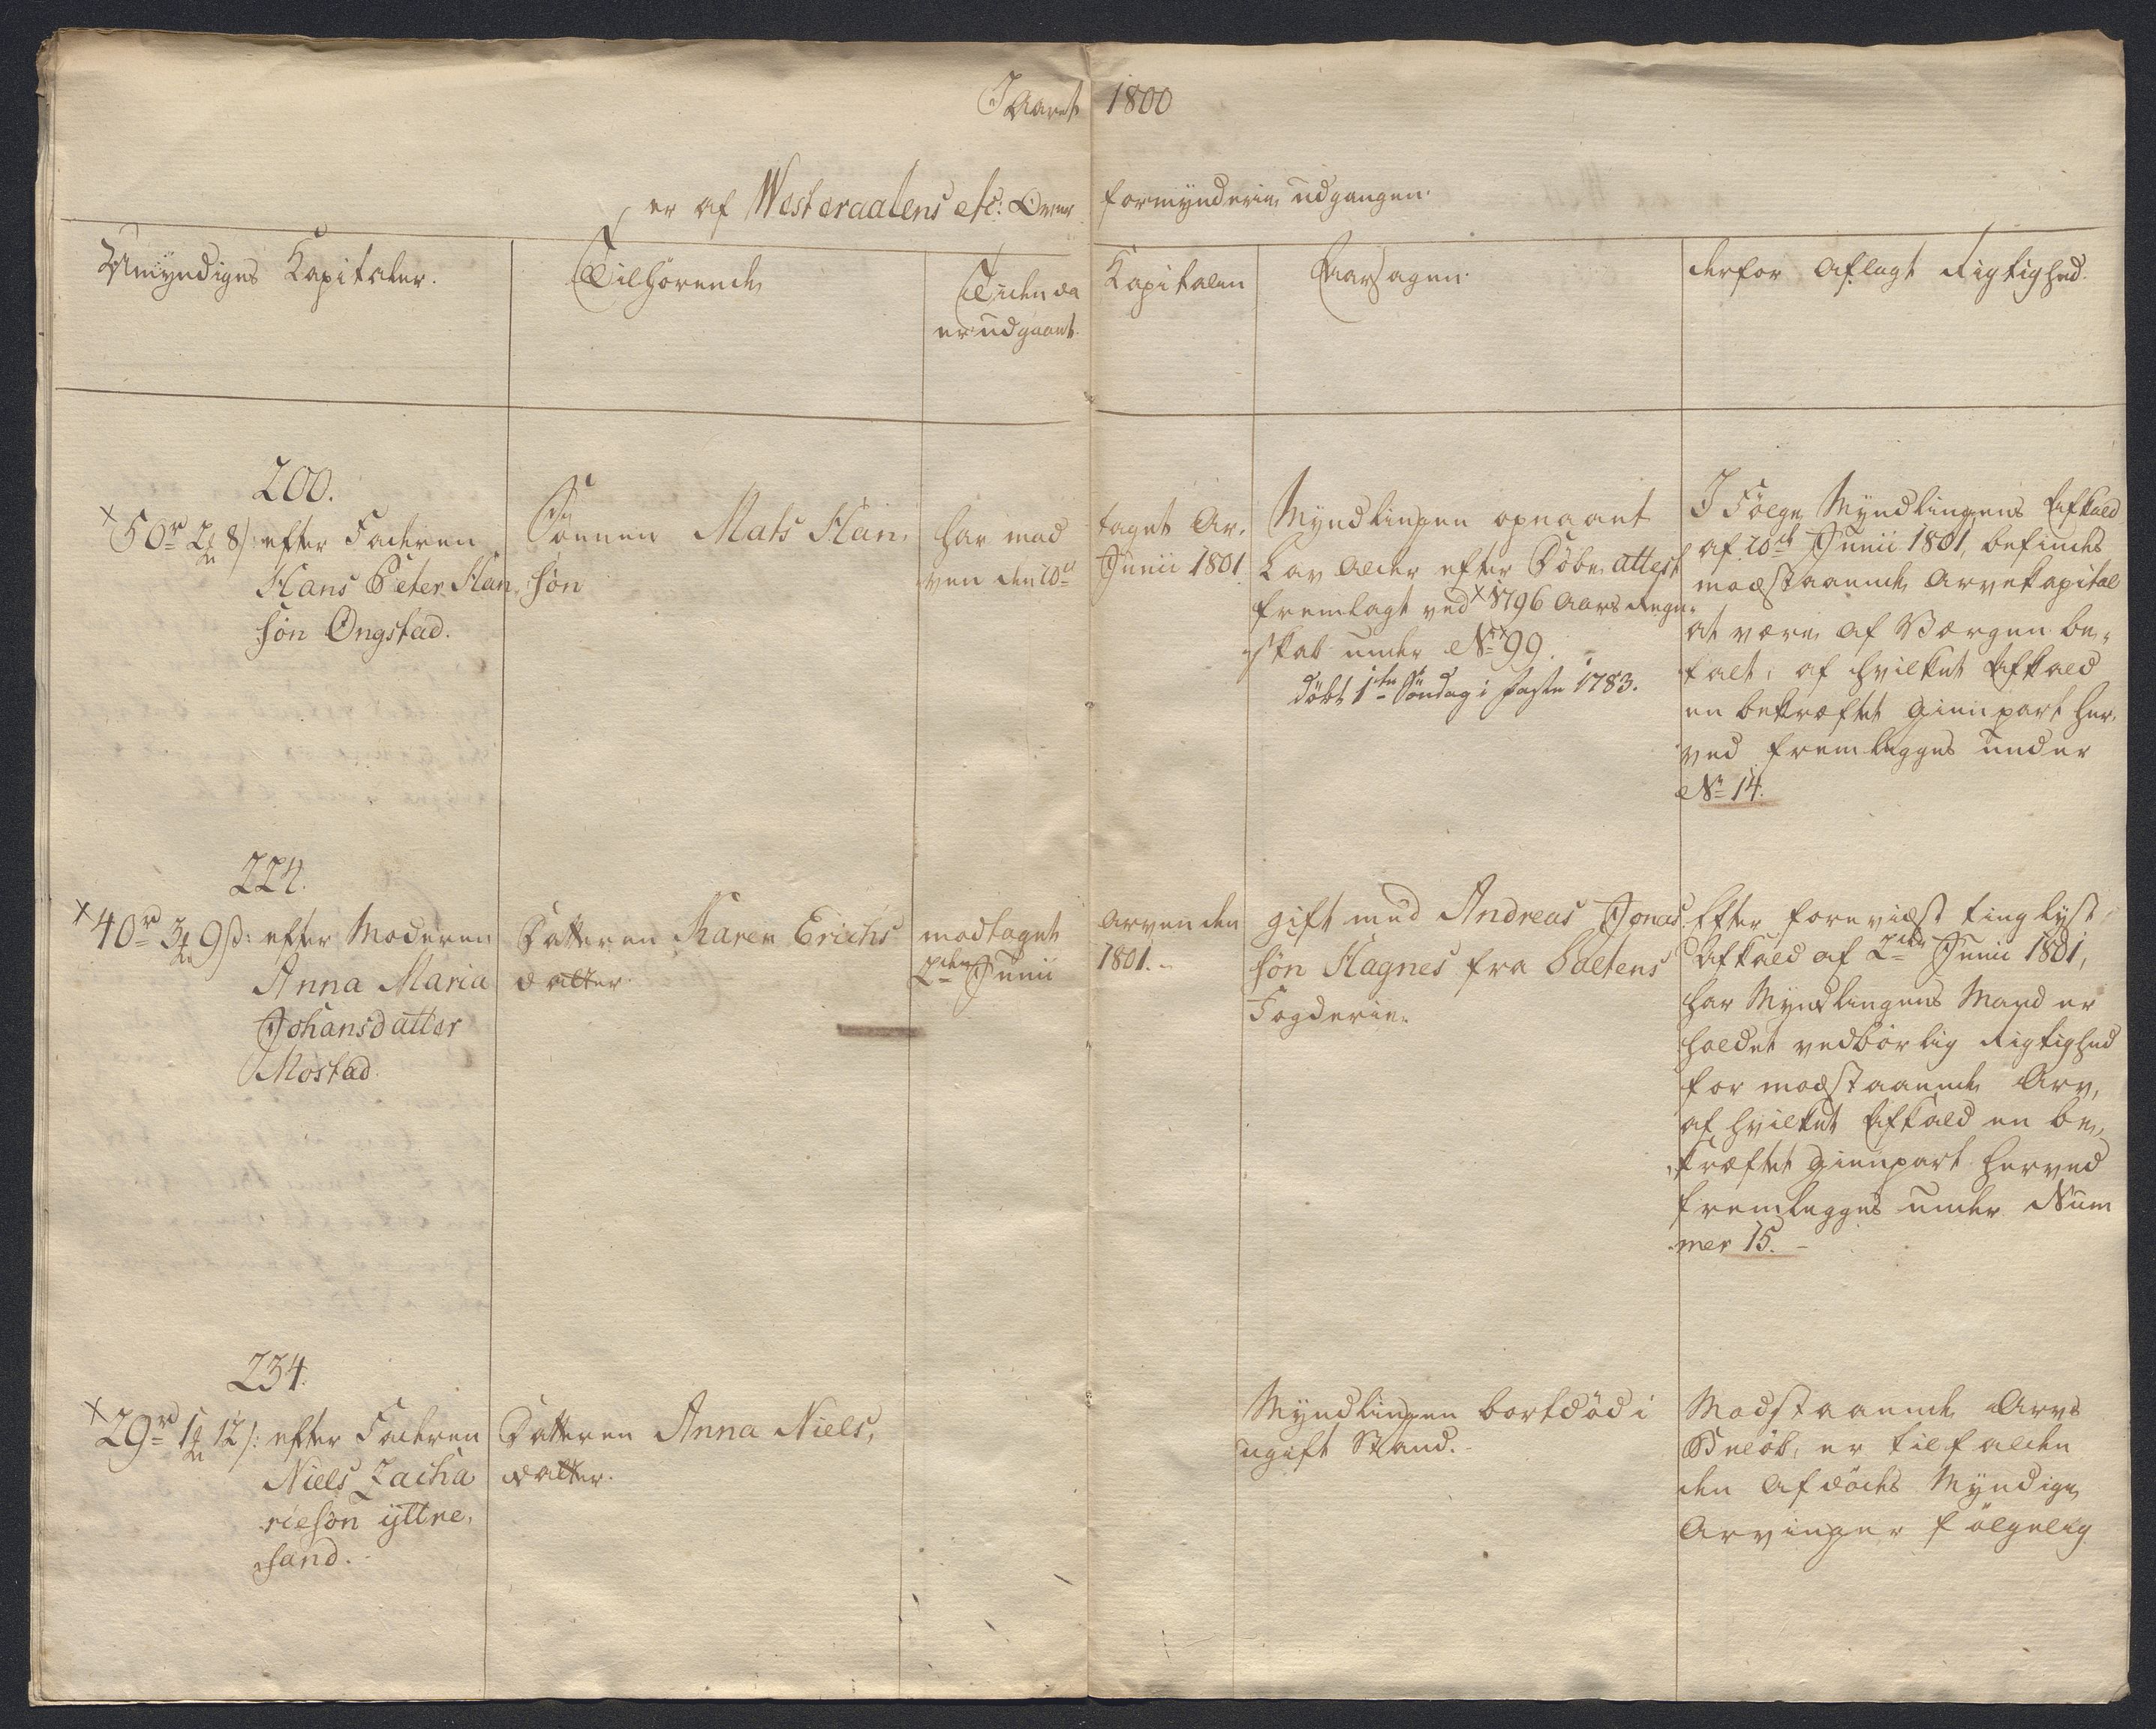 I Aaret 1800
er af Westeraalens etc: Over formynderie, udgangen.
Umyndiges Kapitaler.
Tilhørende
Tiden da
er udgaaet.
Kapitalen
Aarsagen.
derfor aflagt Rigtighed.
200.
50 rd 2 8 s: efter Faderen
Hans Peter Han,
søn Ongstad.
Sønnen Mats Han,
søn
har mod
ven den 20de
taget Ar,
Junii 1801
Myndlingen opnaaet
Lav Alder efter Døbe, attest
fremlagt ved 1796 Aars Regn-
skab under No 99.
døbt 1te Søndag i faste 1783.
I Følge Myndlingens Afkald
af 20de Junii 1801, befindes
modstaaende Arvekapital
at være af Værgen be,
talt, af hvilket Afkald
en bekræftet Gienpart her,
ved fremlegges under
No 14.
224.
40 rd 3 9 s: efter Moderen
Anna Maria
Johansdatter
Mostad.
Datteren Karen Erichs
datter.
modtaget
2den Junii
Arven den
1801.-
gift med Andreas Jonas
søn Hagnes fra Saltens
Fogderie.
Efter foreviist tinglyst,
Afkald af 2den Junii 1801,
har Myndlingens Mand er
holdet vedbørlig Rigtighed
for modstaaende Arv,
af hvilket Afkald en be,
kræftet Gienpart herved
fremlegges under Num
mer 15.-
234.
29 rd 1 12 s: efter Faderen
Niels Zacha
riesøn Yttre,
sand.-
Datteren Anna Niels,
datter.
Myndlingen bortdød i
ugift Stand.-
Modstaaende Arvs
Beløb, er tilfalden
den Afdødes Myndige
Arvinger følgelig